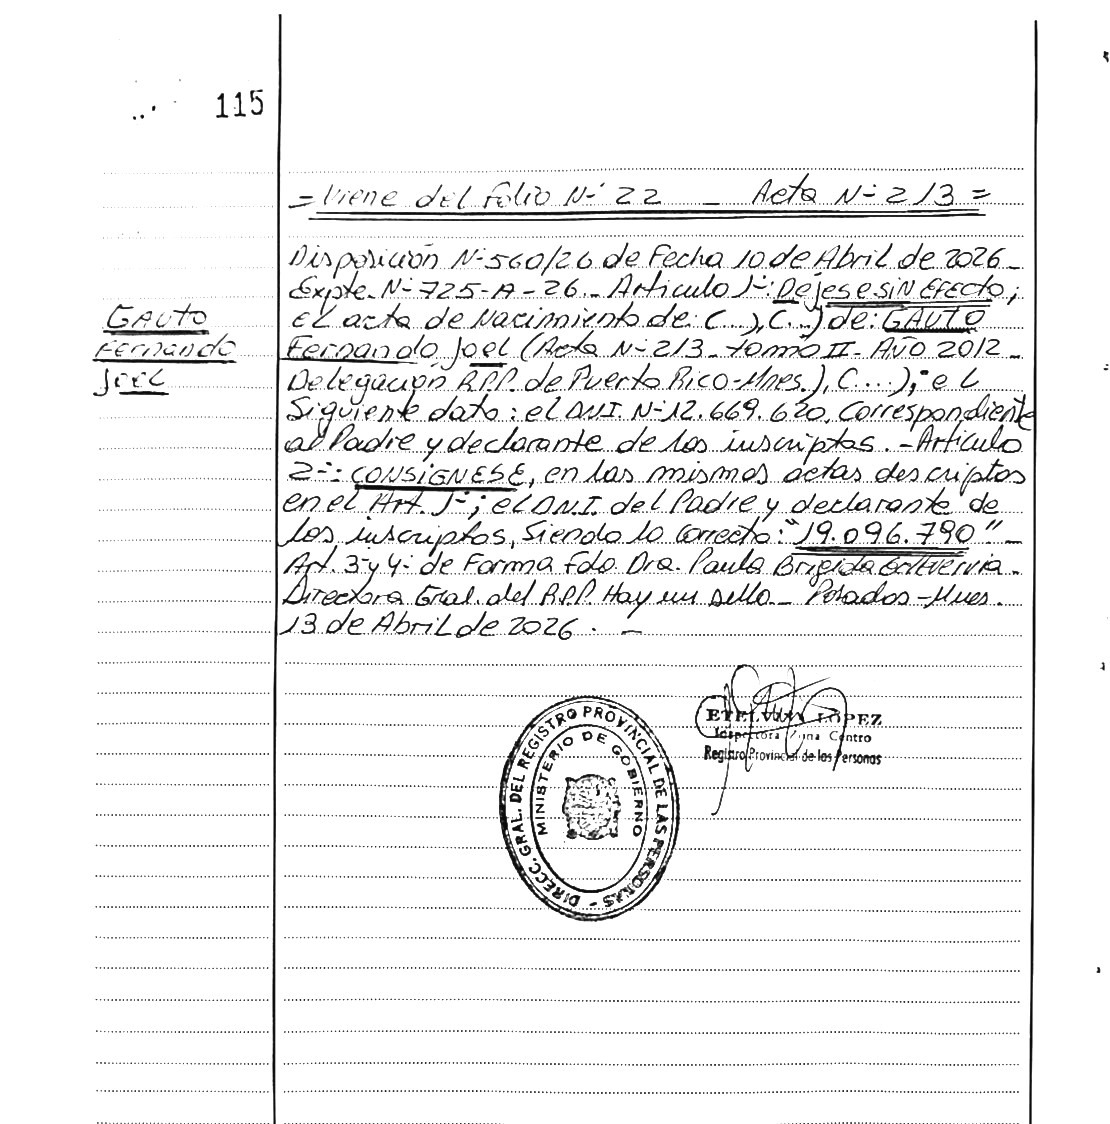 115
= Viene del Folio Nº 22 _ Acta Nº 213 =
Disposición Nº 560/26 de Fecha 10 de Abril de 2026 _
Expte. Nº 725-A-26 _ Articulo 1º: DEjESE SIN EFECTO;
El acta de Nacimiento de: (...), (...) de: GAUTO
Fernando Joel (Acta Nº 213 _ tomo II - AÑO 2012 _
Delegación R.P.P. de Puerto Rico - Mnes.), (...); el
Siguiente dato: el D.N.I. Nº 12.669.620, Correspondiente
al Padre y declarante de los inscriptos. - Articulo
2º: CONSIGNESE, en las mismas actas descriptas
en el Art. 1º; el D.N.I. del Padre y declarante de
los inscriptos, Siendo lo Correcto: "19.096.790" _
Art. 3º y 4º de Forma Fdo Dra. Paula Brigida Echeverria.
Directora Gral. del R.P.P. Hay un sello _ Posadas - Mnes.
13 de Abril de 2026. _
GAUTO
Fernando
Joel
ETELVINA LOPEZ
Inspectora Zona Centro
Registro Provincial de las Personas
DIRECC. GRAL. DEL REGISTRO PROVINCIAL DE LAS PERSONAS -
MINISTERIO DE GOBIERNO